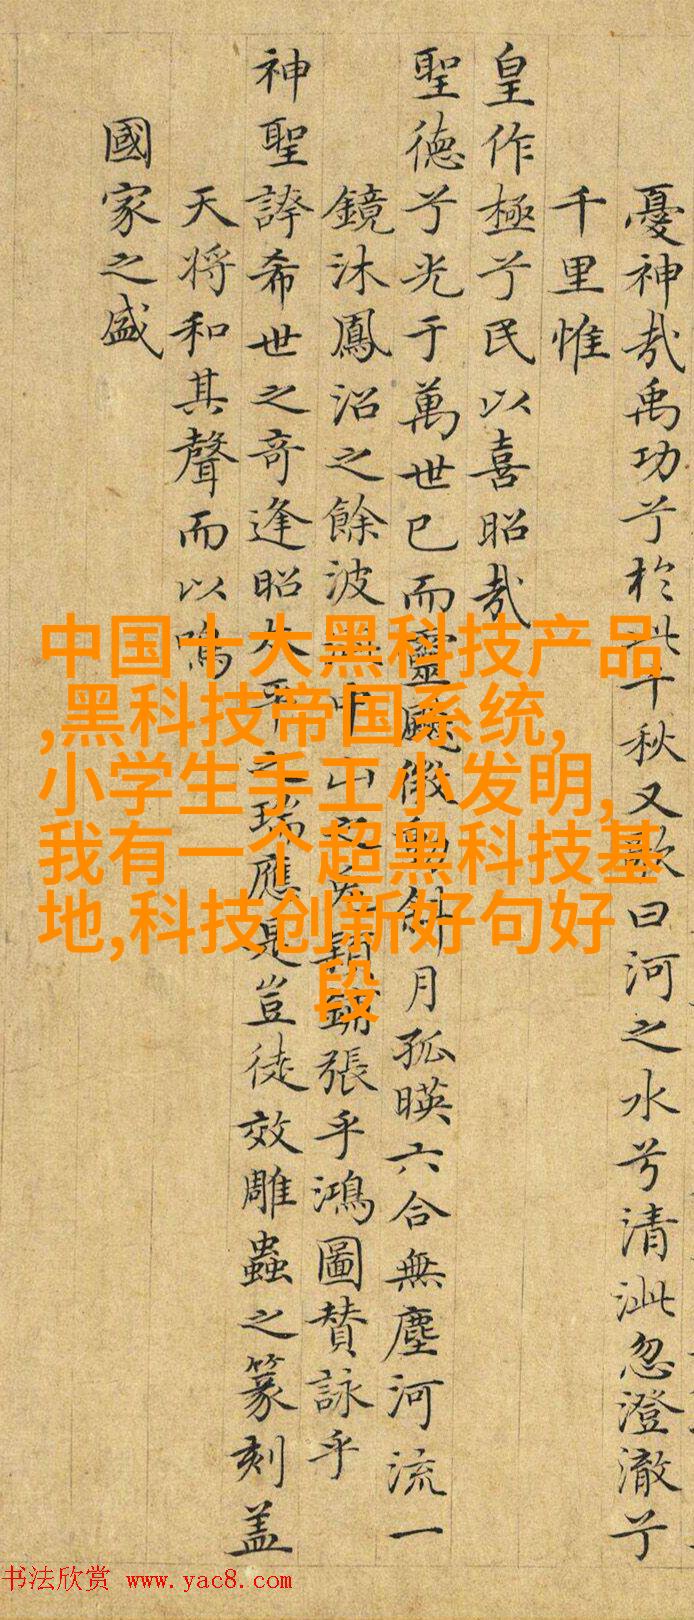 憂神哉禹功兮於此千秋又歌曰河之水兮清泚忽澄澈兮
千里惟
皇作極兮民以喜昭哉
聖德兮光于萬世已而靈飈微動斜月孤暎六合無塵河流一
鏡沐鳳沼之餘波中山之張乎鴻圖贊詠乎
神聖誇希世之奇逢昭太平之瑞應是豈徒效雕蟲之篆刻盖
天将和其聲而以鳴
國家之盛
中国十大黑科技产品
,黑科技帝国系统,
小学生手工小发明,
我有一个超黑科技基
地,科技创新好句好
段
书法欣赏 www.yac8.com